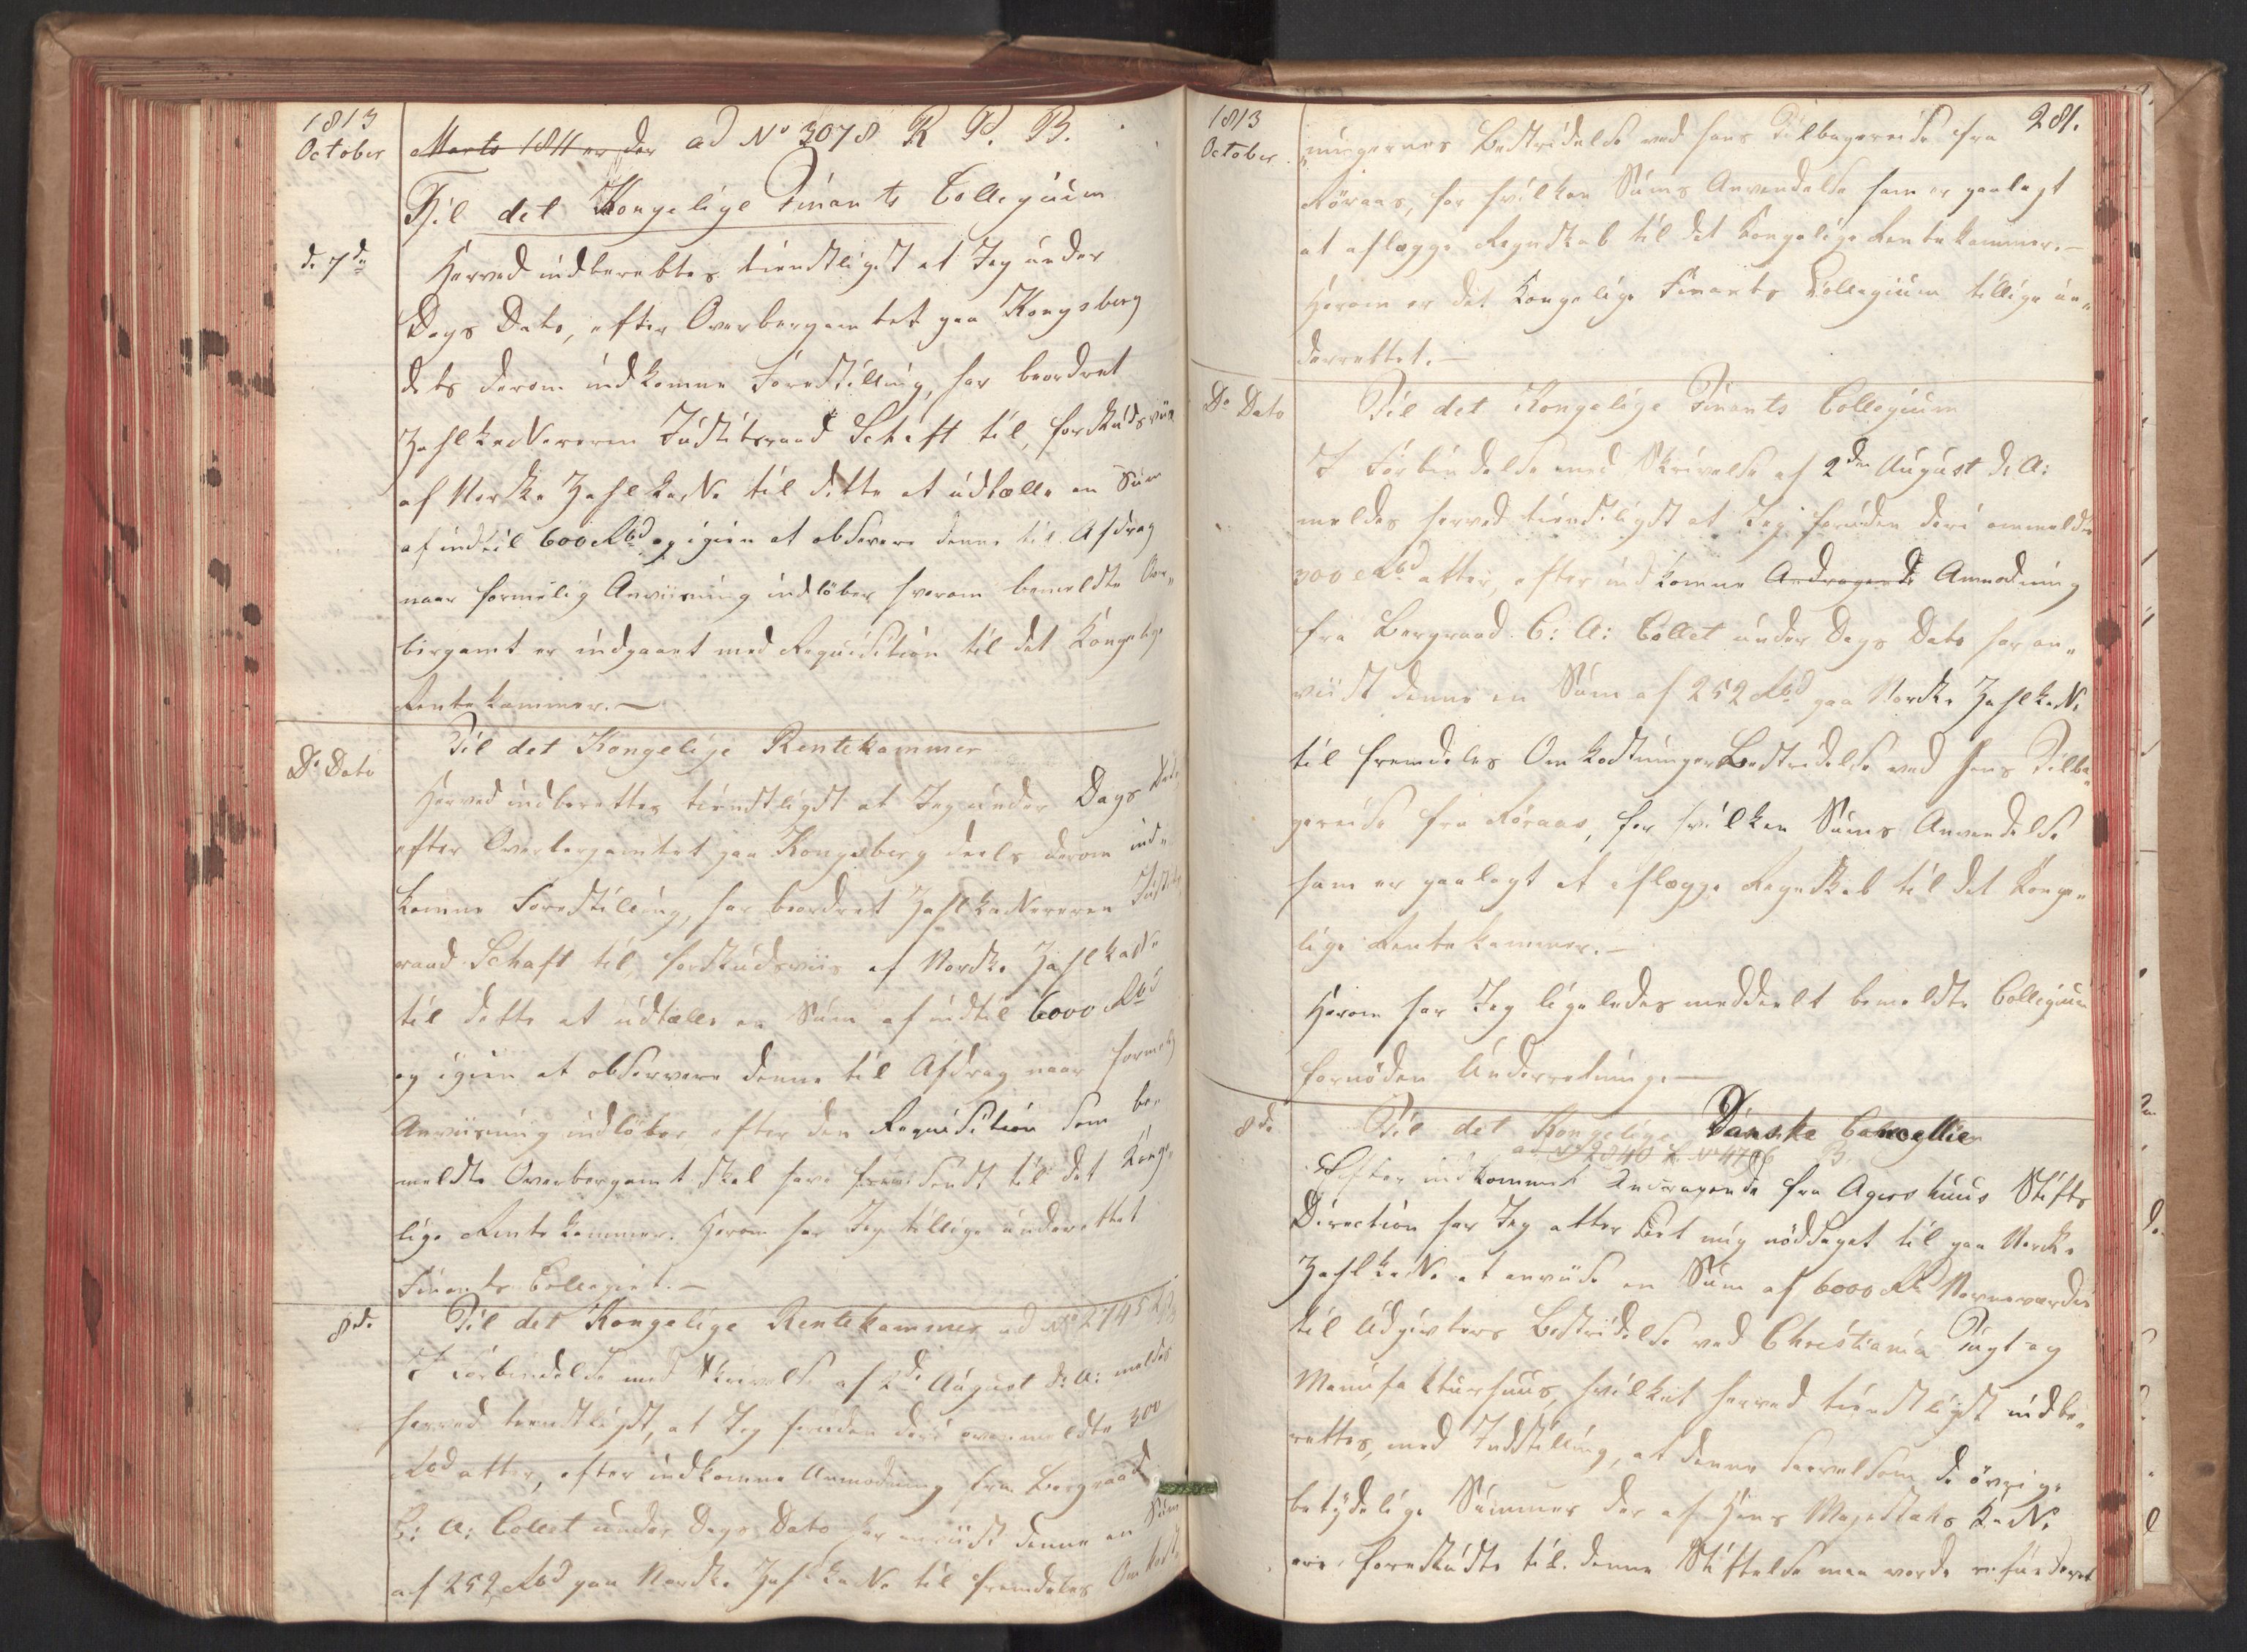 1813
October
Marts 1811 er der ad No 3078 R P. B.
Til det Kongelige Finants Collegium
d. 7de
Herved indberettes tienstligst at Jeg under
Dags Dato, efter Overbergamtet paa Kongsberg
dets derom indkomne Forestilling, har beordret
Zahlkassereren Justitsraad Schaft til, forskudsviis
af Norske Zahlkasse til dette at udtælle en Sum
af indtil 600 Rbd og igien at observere denne til Afdrag
naar formelig Anviisning indløber hvorom bemeldte Over„
bergamt er indgaaet med Requisition til det Kongelige
Rentekammer.—
Do Dato
Til det Kongelige Rentekammer
Herved indberettes tienstligst at Jeg under Dags Dato
efter Overbergamtet paa Kongsberg deels derom ind„
komne Forestilling, har beordret Zahlkassereren Justits
raad Schaft til, forskudsviis af Norske Zahlkasse
til dette at udtælle en Sum af indtil 6000 Rbd
og igien at observere denne til Afdrag naar formelig
Anviisning indløber efter den Requisition som be„
meldte Overbergamt skal have fremsendt til det Konge„
lige Rentekammer. Herom har Jeg tillige underrettet
Finants Collegiet.—
8de
Til det Kongelige Rentekammer ad No 2745
I Forbindelse med Skrivelse af 2de August d. A: meldes
herved tienstligst, at Jeg foruden deri ovenmeldte 300
Rbd atter, efter indkomne Anmodning fra Bergraad
C: A: Collet under Dags Dato har anviist denne en Sum
af 252 Rbd paa Norske Zahlkasse til fremdeles Omkost„
1813
October
281.
ningernes Bestridelse ved hans Tilbagereise fra
Røraas, for hvilken Sums Anvendelse ham er paalagt
at aflægge Regnskab til det Kongelige Rentekammer.—
Herom er det Kongelige Finants Collegium tillige un„
derrettet.—
Do Dato
Til det Kongelige Finants Collegium
I Forbindelse med Skrivelse af 2den August d. A:
meldes herved tienstligst at Jeg foruden deri ommeldte
300 Rbd atter, efter indkomne Andragende Anmodning
fra Bergraad C: A: Collet under Dags Dato har an„
viist denne en Sum af 252 Rbd paa Norske Zahlkasse
til fremdeles Omkostninger Bestridelse ved hans Tilba„
gereise fra Røraas, for hvilken Sums Anvendelse
ham er paalagt at aflægge Regnskab til det Konge„
lige Rentekammer.—
Herom har Jeg ligeledes meddeelt bemeldte Collegium
fornøden Underretning.—
8de
Til det Kongelige Danske Cancellie
ad No 2840 No 4706 B.
Efter indkommet Andragende fra Agershuus Stifts
Direction har Jeg atter seet mig nødsaget til paa Norske
Zahlkasse at anvise en Sum af 6000 Rd Navneværdie
til Udgivters Bestridelse ved Christiania Tugt og
Manufakturhuus, hvilket herved tienstligst indbe„
rettes, med Indstilling, at denne saavelsom de øvrige
betydelige Summer der af Hans Majestæts Kasse
ere forskudte til denne Stiftelse maa vorde refunderet